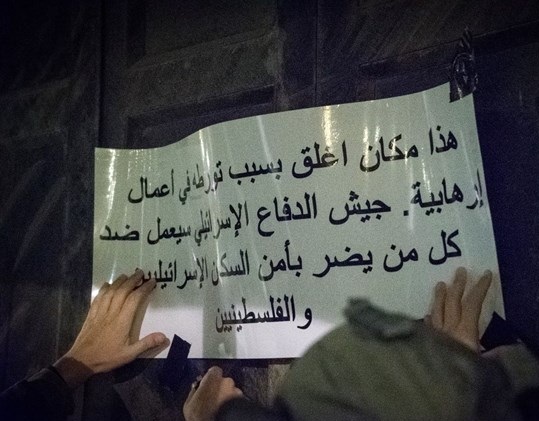 هذا مكان اغلق بسبب تورطه في أعمال
إرهابية. جيش الدفاع الإسرائيلي سيعمل ضد
كل من يضر بأمن السكان الإسرائيليين
والفلسطينيين